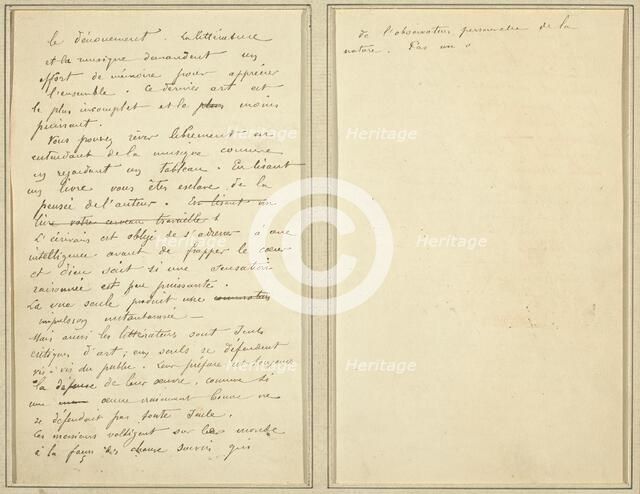 le dénouement. La littérature
et la musique demandent un
effort de mémoire pour apprécier
l'ensemble. Ce dernier art est
le plus incomplet et le plus moins
puissant.
Vous pouvez rêver librement en
entendant de la musique comme
en regardant un tableau. En lisant
un livre vous êtes esclave de la
pensée de l'auteur. En lisant un
livre votre cerveau travaille
L'écrivain est obligé de s'adresser à une
intelligence avant de frapper le cœur
et dieu sait si une sensation
raisonnée est peu puissante.
La vue seule produit une
impulsion instantanée —
Mais aussi les littérateurs sont seuls
critiques d'art; eux seuls se défendent
vis à vis du public. Leur préface est toujours
la défense de leur œuvre, comme si
une œuvre vraiment bonne ne
se défendait pas toute seule.
Ces messieurs voltigent sur le monde
à la façon des chauve souris qui
de l'observation personnelle de la
nature. Pas un
Heritage
Heritage
Heritage
Heritage
Heritage
Heritage
Heritage
Heritage
Heritage
C